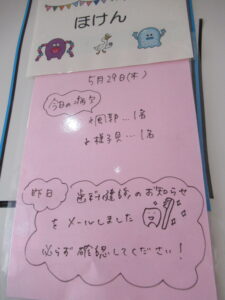 ほけん
5月29日(木)
今日の病欠
↓風邪…1名
↓様子見…1名
昨日
歯科健診のお知らせ
をメールしました
必らず確認してください!